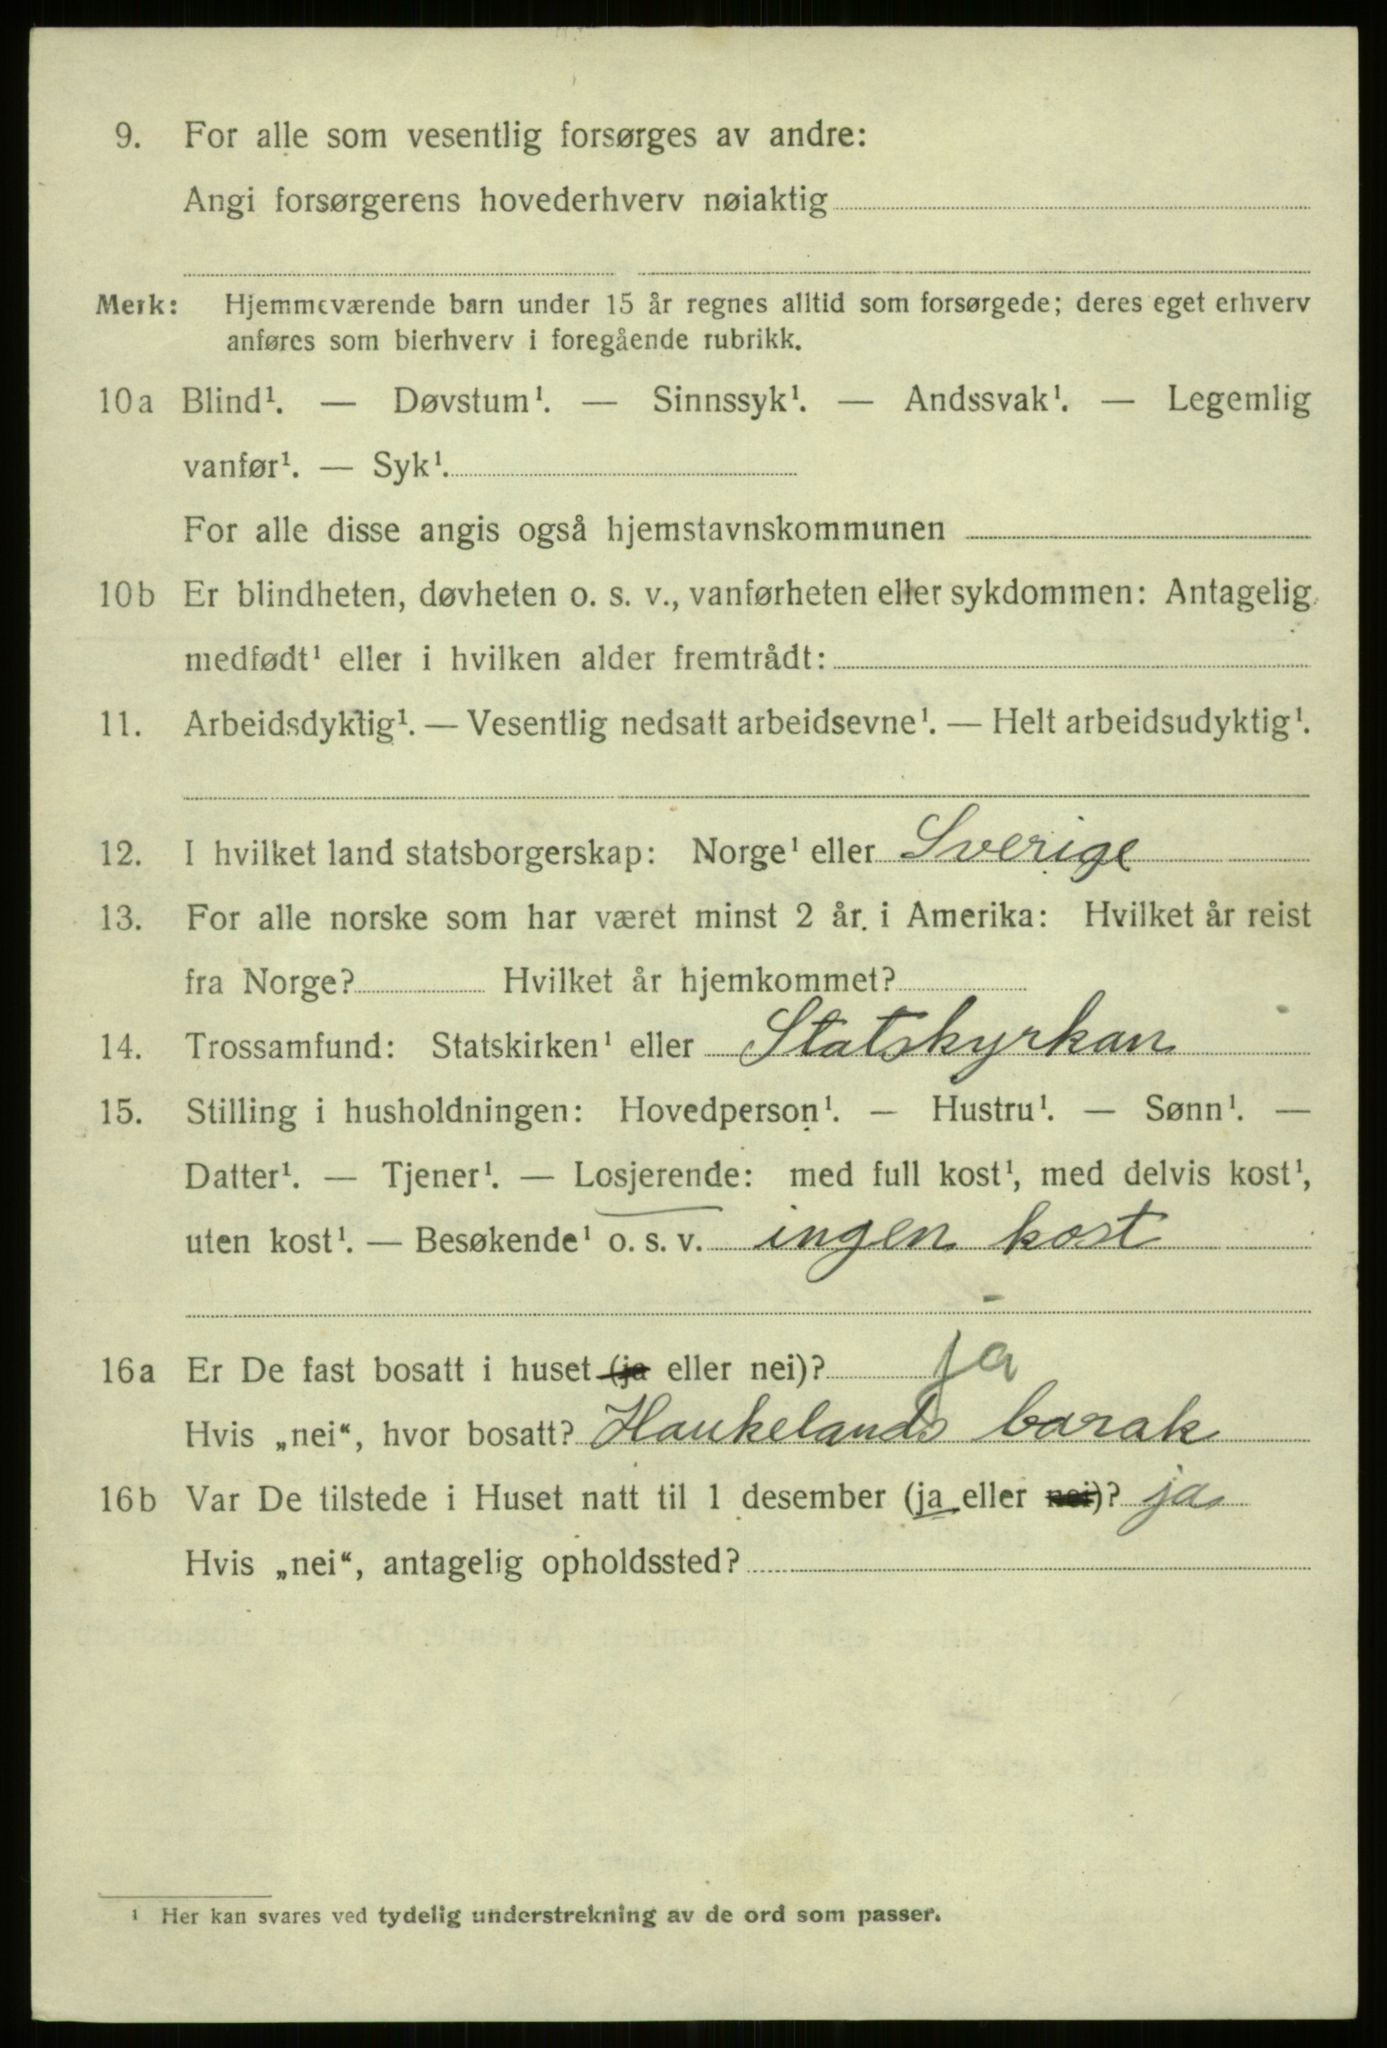 9. For alle som vesentlig forsørges av andre:
Angi forsørgerens hovederhverv nøiaktig
Merk: Hjemmeværende barn under 15 år regnes alltid som forsørgede; deres eget erhverv
anføres som bierhverv i foregående rubrikk.
10a Blind¹. — Døvstum¹. — Sinnssyk¹. — Andssvak¹. — Legemlig
vanfør¹. — Syk¹.
For alle disse angis også hjemstavnskommunen
10b Er blindheten, døvheten o. s. v., vanførheten eller sykdommen: Antagelig
medfødt¹ eller i hvilken alder fremtrådt:
11. Arbeidsdyktig¹. — Vesentlig nedsatt arbeidsevne¹. — Helt arbeidsudyktig¹.
12. I hvilket land statsborgerskap: Norge¹ eller Sverige
13. For alle norske som har været minst 2 år i Amerika: Hvilket år reist
fra Norge? Hvilket år hjemkommet?
14. Trossamfund: Statskirken¹ eller Statskyrkan
15. Stilling i husholdningen: Hovedperson¹. — Hustru¹. — Sønn¹. —
Datter¹. — Tjener¹. — Losjerende: med full kost¹, med delvis kost¹,
uten kost¹. — Besøkende¹ o. s. v. ingen kost
16a Er De fast bosatt i huset (ja eller nei)? ja
Hvis „nei“, hvor bosatt? Haukelands barak
16b Var De tilstede i Huset natt til 1 desember (ja eller nei)? ja
Hvis „nei“, antagelig opholdssted?
¹ Her kan svares ved tydelig understrekning av de ord som passer.